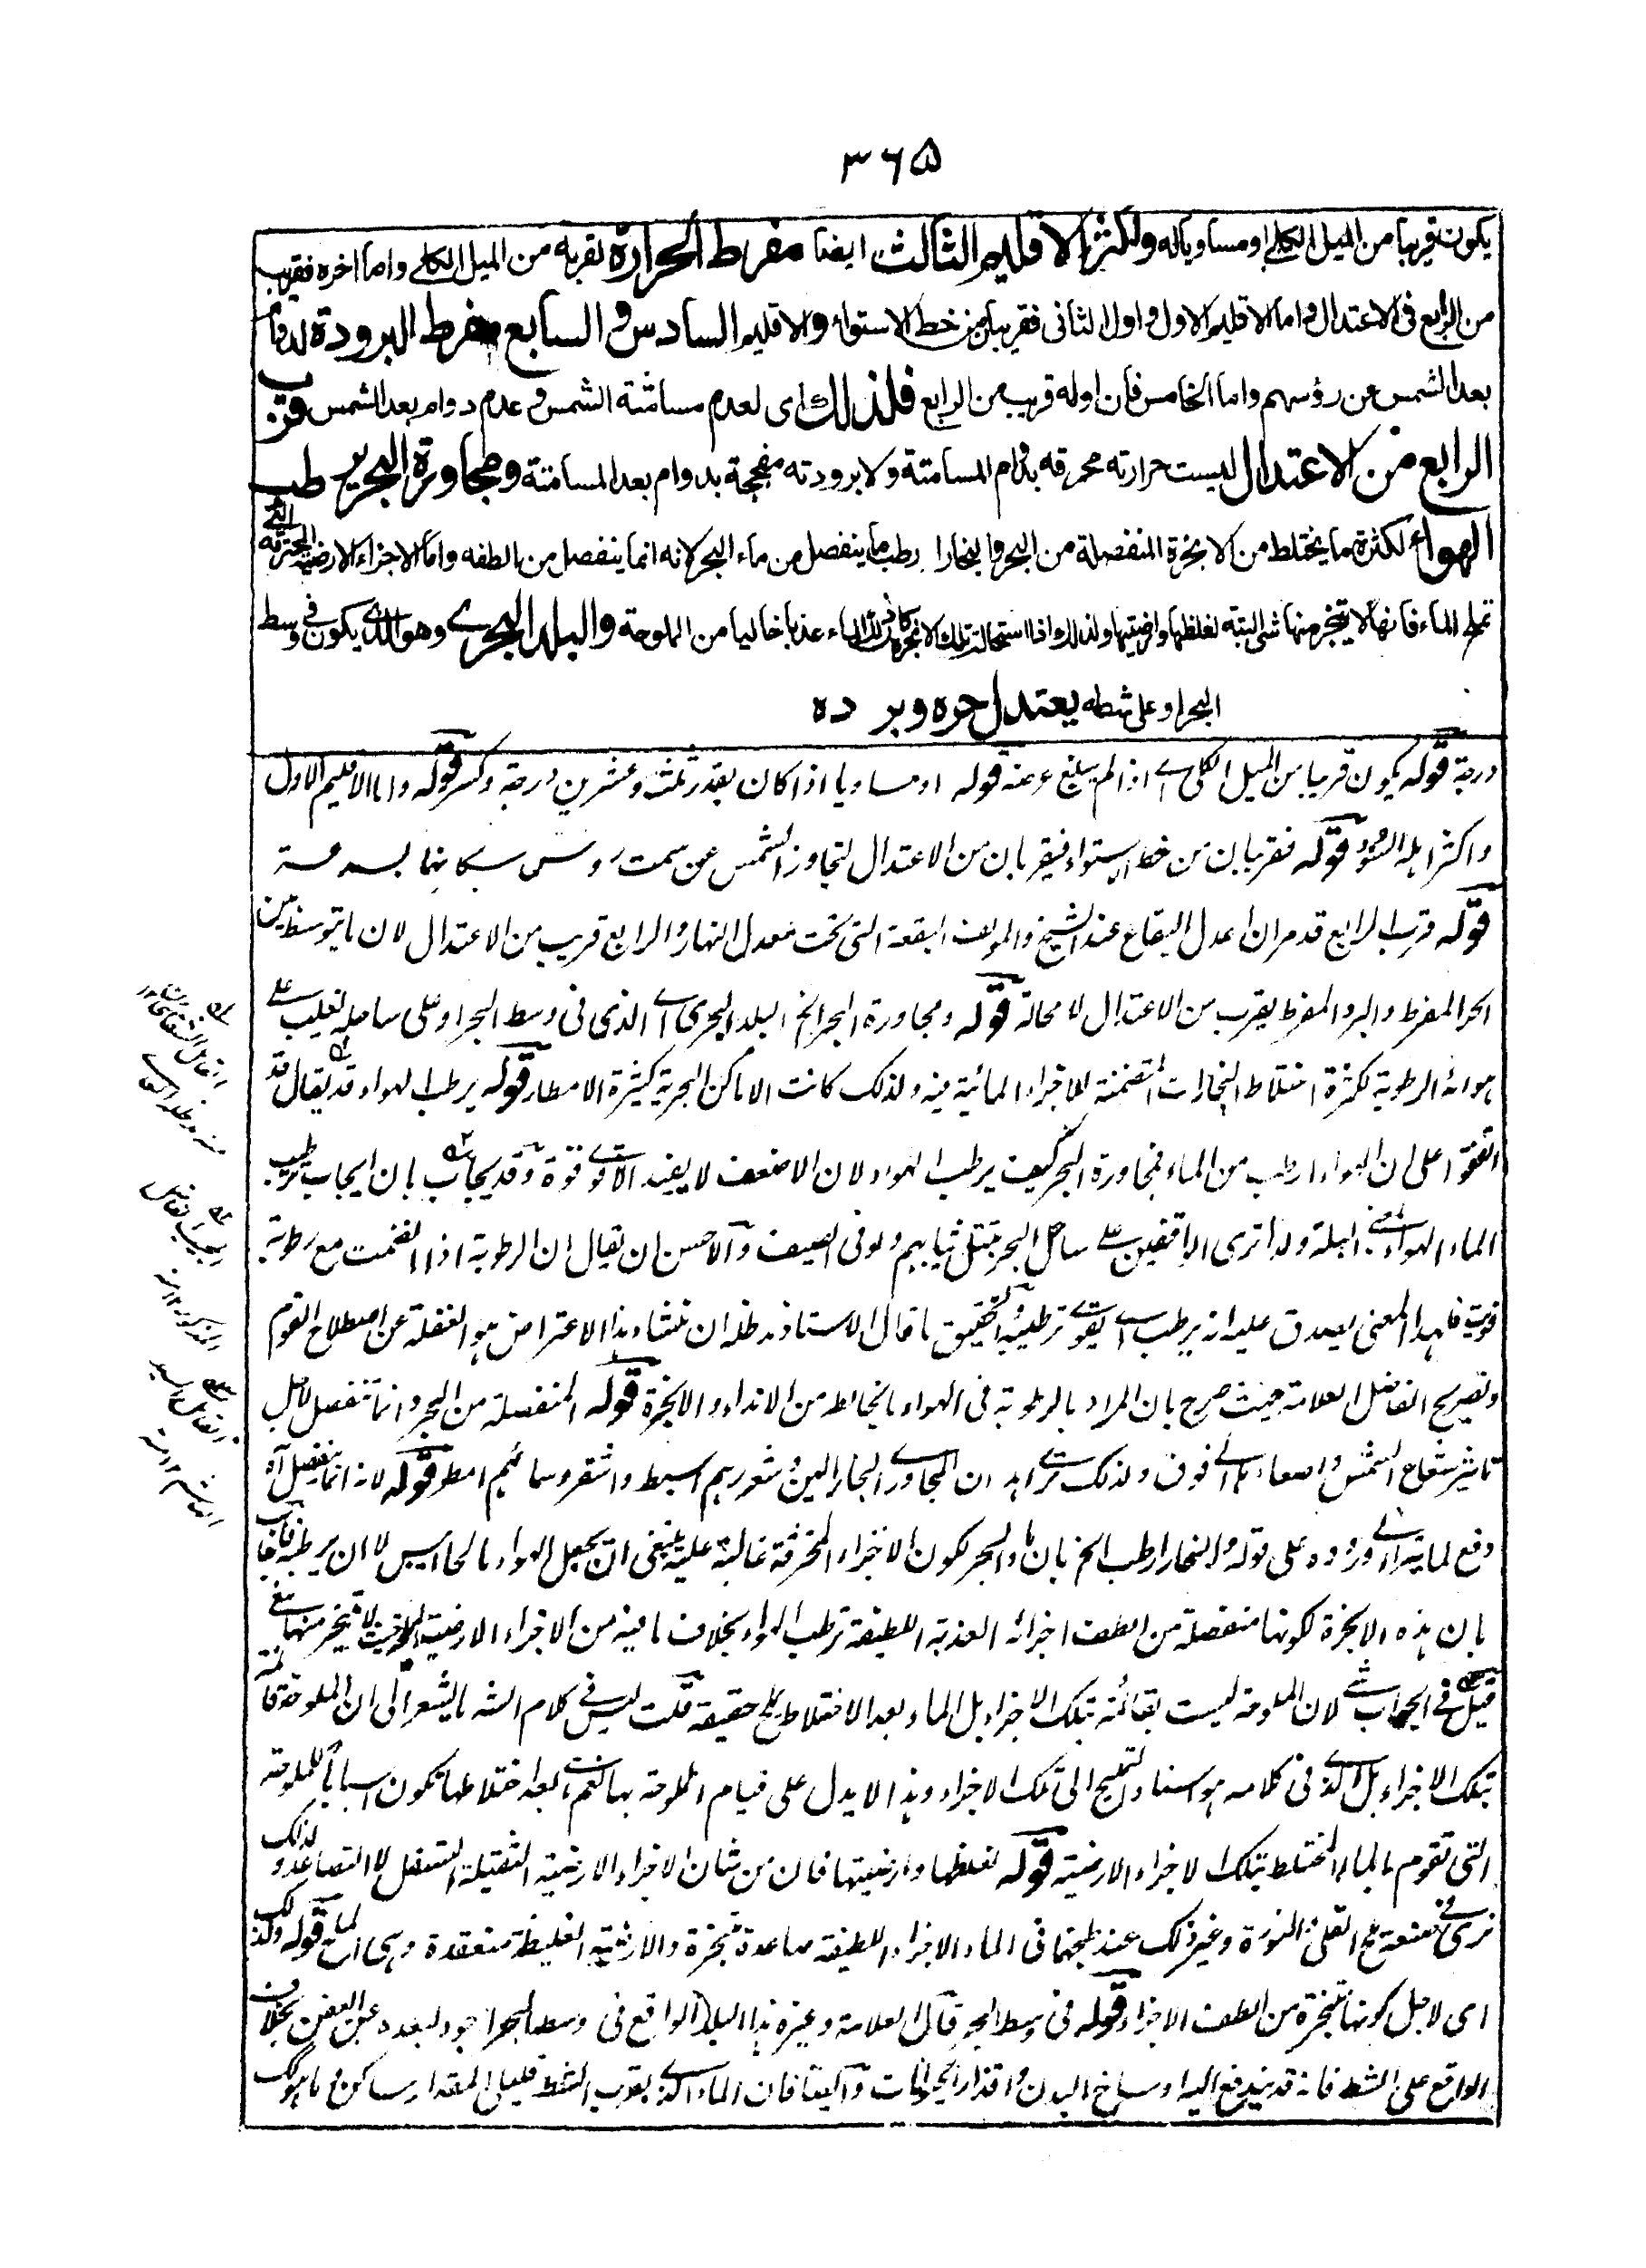 ٣٦٥
يكون قريبا من الميل الكلي او مساويا له ولكثرتها الاقليم الثالث ايضا مفرط الحرارة لقربه من الميل الكلي واما اخره فقريب
من الرابع فى الاعتدال واما الاقليم الاول واول الثانى فقريبان من خط الاستواء والاقليم السادس والسابع مفرط البرودة لدوام
بعد الشمس عن رؤسهم واما الخامس فان اوله قريب من الرابع فلذلك اى لعدم مسامتة الشمس وعدم دوام بعد الشمس قرب
الرابع من الاعتدال ليست حرارته محرقه بدوام المسامتة ولا برودته مفججة بدوام بعد المسامتة ومجاورة البحر يرطب
الهواء لكثرة ما يختلط من الابخرة المنفصلة من البحر والبخار ارطب ما ينفصل من ماء البحر لانه انما ينفصل من الطفه واما الاجزاء الارضية المحترقه التي
تملح الماء فانها لا يتبخر منها شئ البتة لغلظها وارضيتها ولذلك اذا استحالت تلك الابخرة كان ذلك الماء عذبا خاليا من الملوحة والبلد البحرى وهو الذى يكون فى وسط
البحر او على شطه يعتدل حره وبرده
درجة قوله يكون قريبا من الميل الكلى اى اذا لم يبلغ عرضه قوله او مساويا اذا كان بقدر ثلث وعشرين درجة وكسر قوله واما الاقليم الاول
واكثر اهله السود قوله فقريبان من خط الاستواء فيقربان من الاعتدال لتجاوز الشمس عن سمت رؤس سكانهما بسرعة
قوله قرب الرابع قد مر ان اعدل البقاع عند الشيخ والمؤلف البقعة التى تحت معدل النهار والرابع قريب من الاعتدال لان ما يتوسط بين
الحر المفرط والبرد المفرط يقرب من الاعتدال لا محالة قوله ومجاورة البحر الخ البلد البحرى اى الذى فى وسط البحر او على ساحله تغلب على
هوائه الرطوبة لكثرة اختلاط البخارات المتضمنة للاجزاء المائية فيه ولذلك كانت الاماكن البحرية كثيرة الامطار قوله يرطب الهواء قد يقال قد
اتفقوا على ان الهواء ارطب من الماء فمجاورة البحر كيف يرطب الهواء لان الاضعف لا يفيد الاقوى قوة وقد يجاب بان ايجاب ترطيب
الماء الهواء بمعنى البلة ولذا ترى الواقفين على ساحل البحر تبتل ثيابهم ولو فى الصيف والاحسن ان يقال ان الرطوبة اذا انضمت مع رطوبة
قويت فلهذا المعنى يصدق عليه انه يرطب اى يقوى ترطيبه والتحقيق ما قال الاستاذ مد ظله ان منشاء هذا الاعتراض هو الغفلة عن اصطلاح القوم
وتصريح الفاضل العلامة حيث صرح بان المراد بالرطوبة فى الهواء ما يخالطه من الانداء والابخرة قوله المنفصلة من البحر وانما تنفصل لاجل
تاثير شعاع الشمس واصعاده الى فوق ولذلك ترى ابدان المجاورى البحار الين وشعورهم اسبط واشقر وسمائهم امطر قوله لانه انما ينفصل آه
دفع لما يتراءى وروده على قوله والبخار ارطب الخ بان ماء البحر لكون الاجزاء المحترقة غالبة عليه ينبغى ان يجعل الهواء مالحا ايبس لا ان يرطبه فاجاب
بان هذه الابخرة لكونها منفصلة من الطف اجزائه العذبة اللطيفة ترطب الهواء بخلاف ما فيه من الاجزاء الارضية المالحة حيث لا يتبخر منها شئ
قيل فى الجواب شئ لان الملوحة ليست بقائمة بتلك الاجزاء بل الماء بعد الاختلاط يملح حقيقة قلت ليس فى كلام الشه ما يشعر الى ان الملوحة قائمة
بتلك الاجزاء بل الذى فى كلامه هو اسناد التمليح الى تلك الاجزاء وهذا لا يدل على قيام الملوحة بها نعم بعد اختلاطها تكون اسبابا للملوحة
التى تقوم بالماء المختلط بتلك الاجزاء الارضية قوله لغلظها وارضيتها فان من شان الاجزاء الارضية الثقيلة التسفل لا التصاعد ولذلك
نرى فى صنعة ملح القلى والنورة وغير ذلك عند طبخها فى الماء الاجزاء اللطيفة صاعدة متبخرة والارضية الغليظة منعقدة قوله ولذلك
اى لاجل كونها متبخرة من الطف الاجزاء قوله فى وسط البحر قال العلامة وغيره هذا البلد الواقع فى وسط البحر اجود لبعده عن العفن بخلاف
الواقع على الشط فانه قد يندفع اليه اوساخ البدن واقذار الحيوانات وايضا فان الماء الذى بقرب الشط قليل المقدار ساكن وما هو كذلك